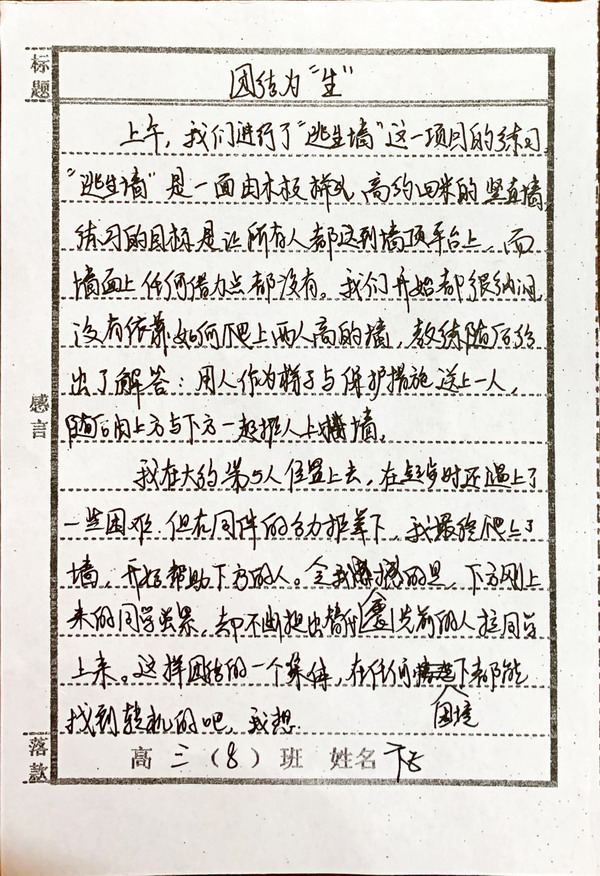 标题
团结为“生”
上午，我们进行了“逃生墙”这一项目的练习。
“逃生墙”是一面由木板搭成，高约四米的竖直墙，
练习的目标是让所有人都达到墙顶平台上，而
墙面上任何借力点都没有。我们开始都很纳闷，
没有依靠如何爬上两人高的墙，教练随后给
出了解答：用人作为梯子与保护措施送上一人，
随后由上方与下方一起推人上墙。
感言
我在大约第5人位置上去，在起步时还遇上了
一些困难，但在同伴的合力推举下，我最终爬上了
墙，开始帮助下方的人。令我感撼的是，下方刚上
来的同学虽累，却不断提出替代先前的人拉同学
上来。这样团结的一个集体，在任何困境下都能
找到转机的吧，我想.
落款
高三（8）班 姓名